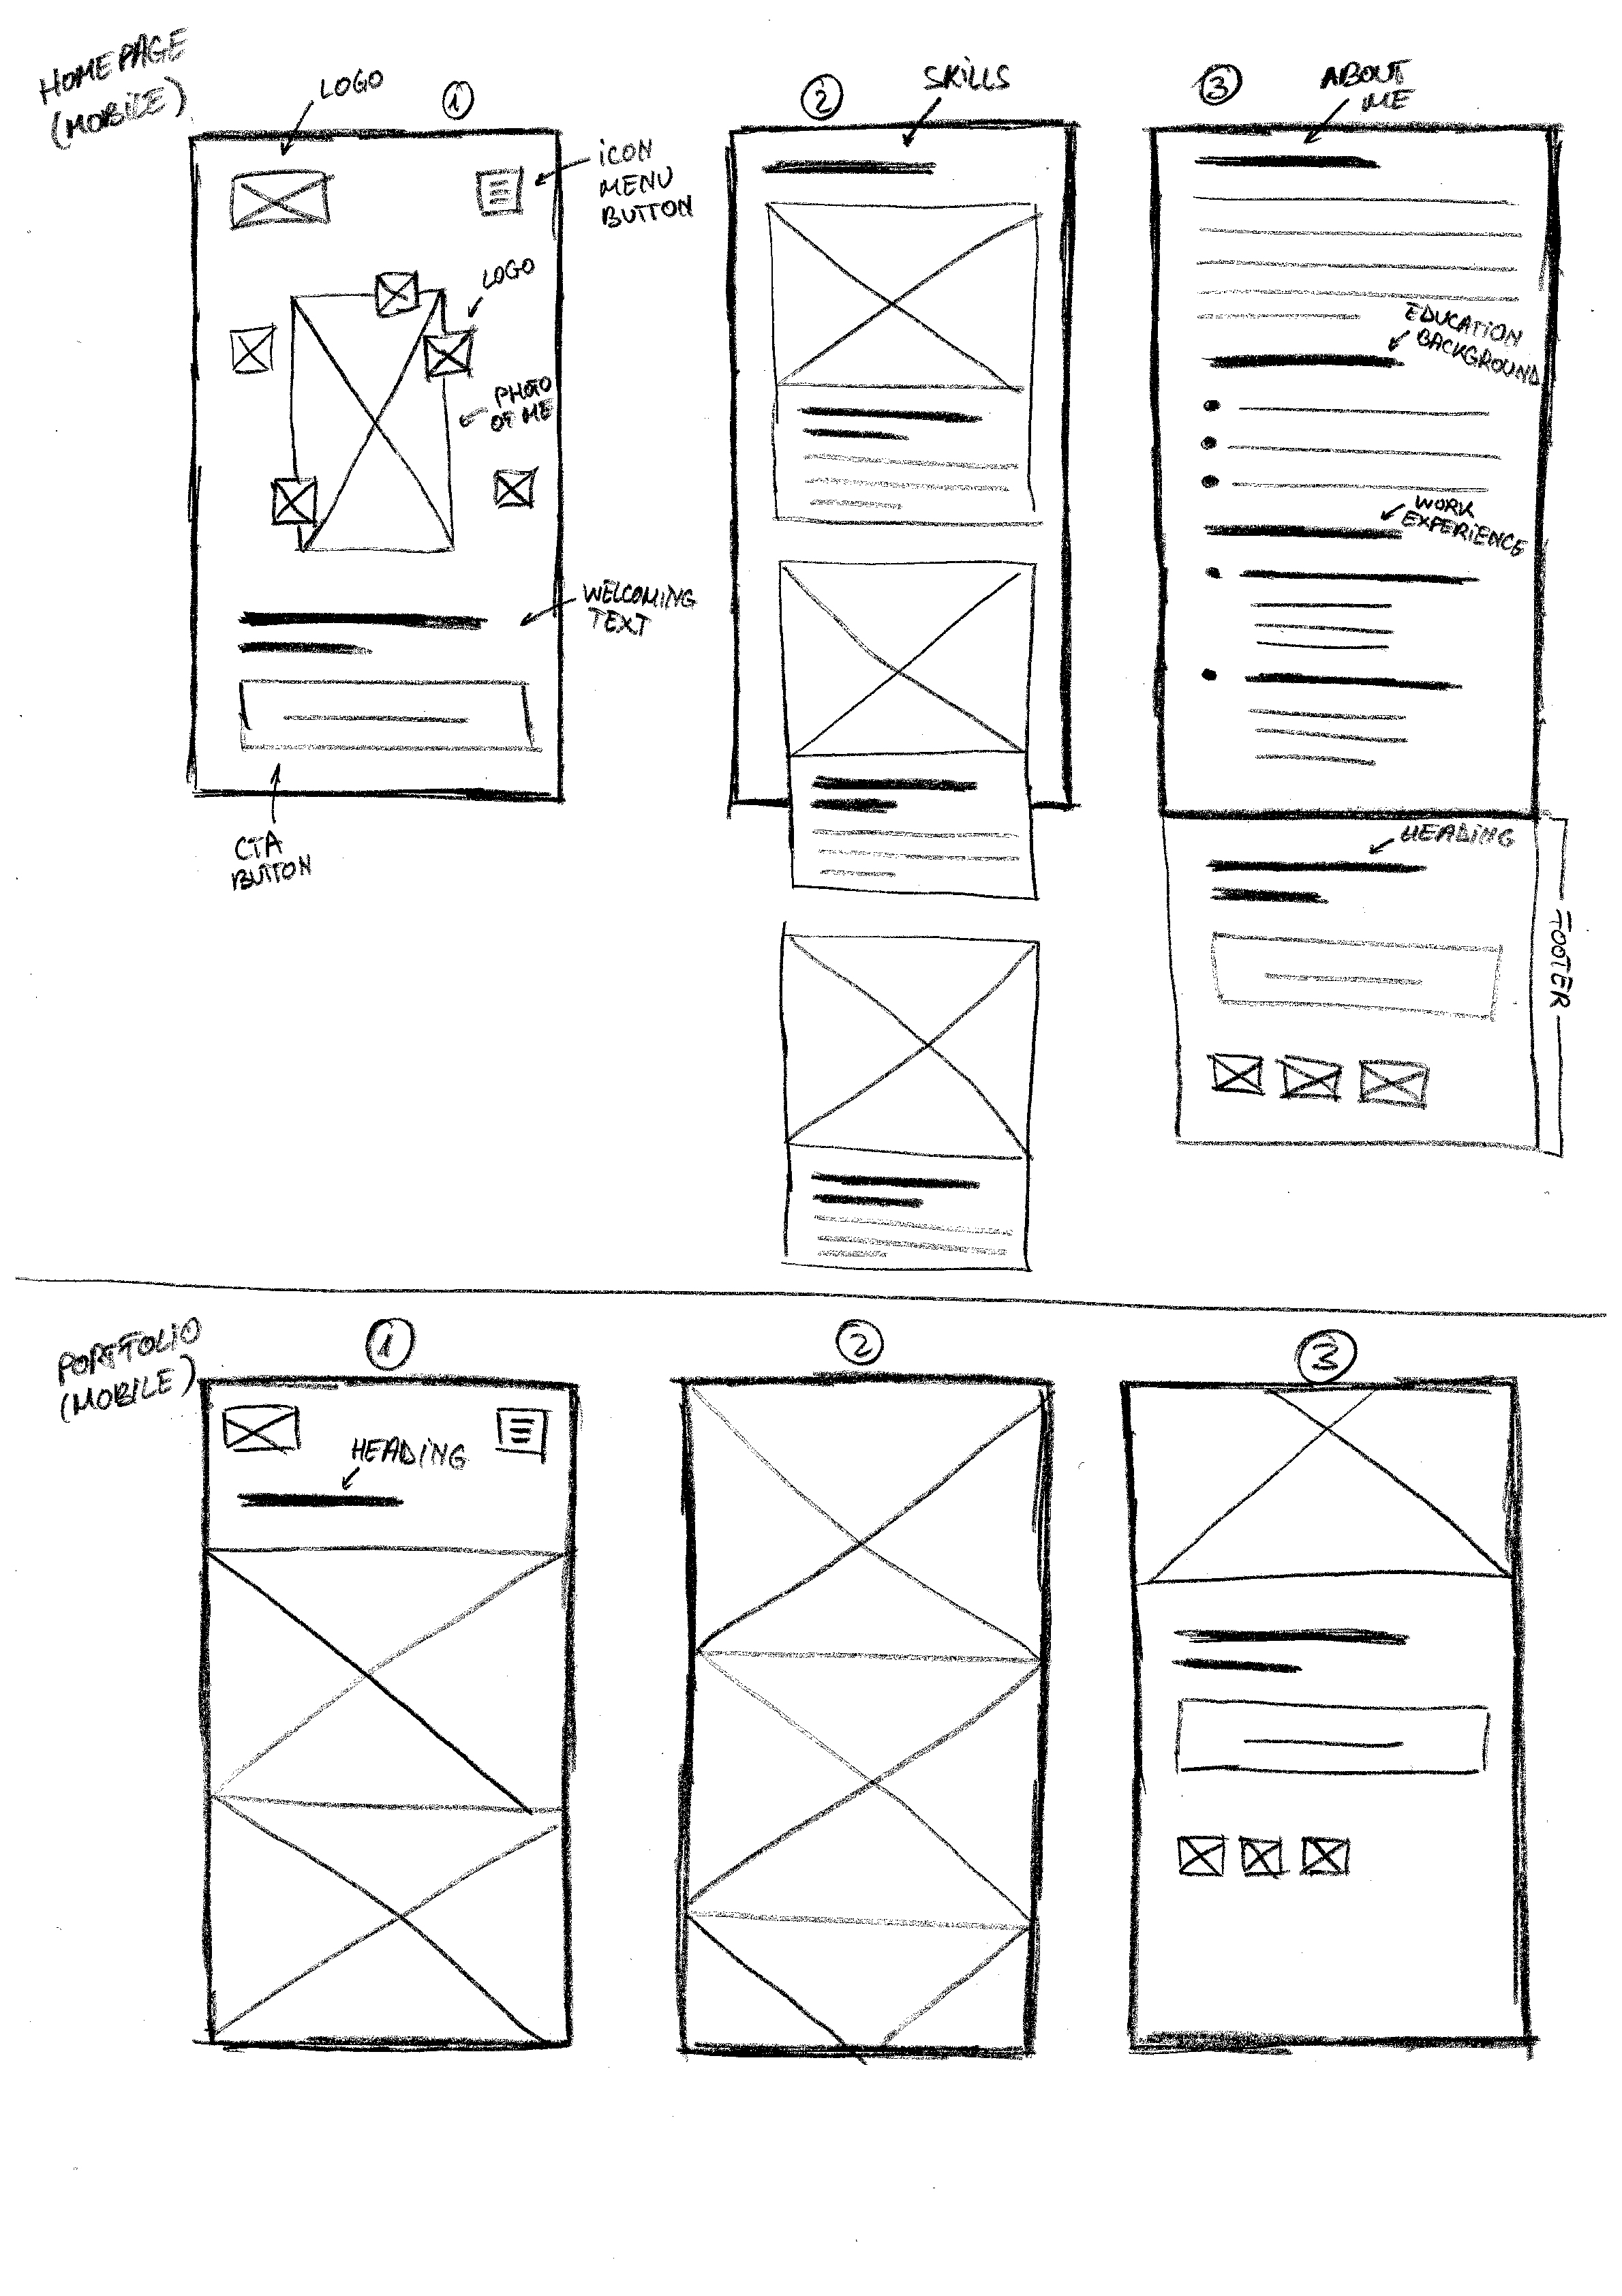 HOMEPAGE
(MOBILE)
LOGO
1
ICON
MENU
BUTTON
LOGO
PHOTO
OF ME
WELCOMING
TEXT
CTA
BUTTON
2
SKILLS
3
ABOUT
ME
EDUCATION
BACKGROUND
WORK
EXPERIENCE
HEADING
FOOTER
PORTFOLIO
(MOBILE)
1
HEADING
2
3